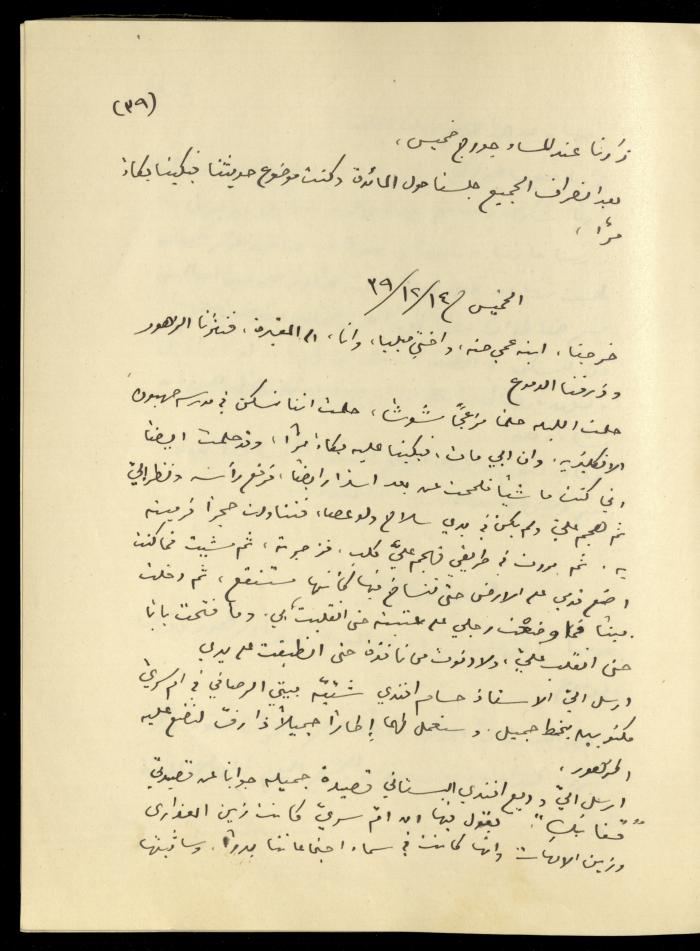 (٣٩)
زارنا عند المساء جورج خميس،
بعد انصراف الجميع جلسنا حول المائدة وكنتِ موضوع حديثنا فبكينا بكاءً
مرًّا،
الخميس ١٤/ ١٢/ ٣٩
خرجنا، ابنة عمي حنه، واختي ميليا، وانا، الى المقبرة، فنثرنا الزهور
وذرفنا الدموع
حلمت الليله حلمًا مزعجًا مشوشًا، حلمت اننا نسكن في مدرسه صهيون
الانكليزيه. وان ابي مات، فبكينا عليه بكاءً مرًّا، وقد حلمت ايضًا
اني كنت ماشيًا فلمحت عن بعد اسدًا رابضًا، فرفع رأسه ونظر اليّ
ثم هجم عليّ ولم يكن في يدي سلاح ولا عصا، فتناولت حجرًا فرميته
به. ثم مررت في طريقي فهجم عليّ كلب، فزجرته، ثم مشيت فما كنت
اضع قدمي على الارض حتى تنساخ فيها كأنها مستنقع، ثم دخلت
بيتًا فما وضعت رجلي على عتبته حتى انقلبت بي. وما فتحت بابًا
حتى انقلب عليّ، ولا دنوت من نافذة حتى انطبقت على يدي
ارسل اليّ الاستاذ حسام افندي بيتي الرصافي في ام سريّ
مكتوبين بخط جميل. وسنعمل لهما إطارًا جميلًا ذا رفّ لنضع عليه
الزهور،
ارسل اليّ وديع افندي البستاني قصيدة جميله جوابًا عن قصيدتي
"قفا نبكِ". يقول فيها ان امّ سريّ كانت زين العذارى
وزين الامهات وانها كانت في سماء اجتماعاتنا بدرًا. وسأثبتها